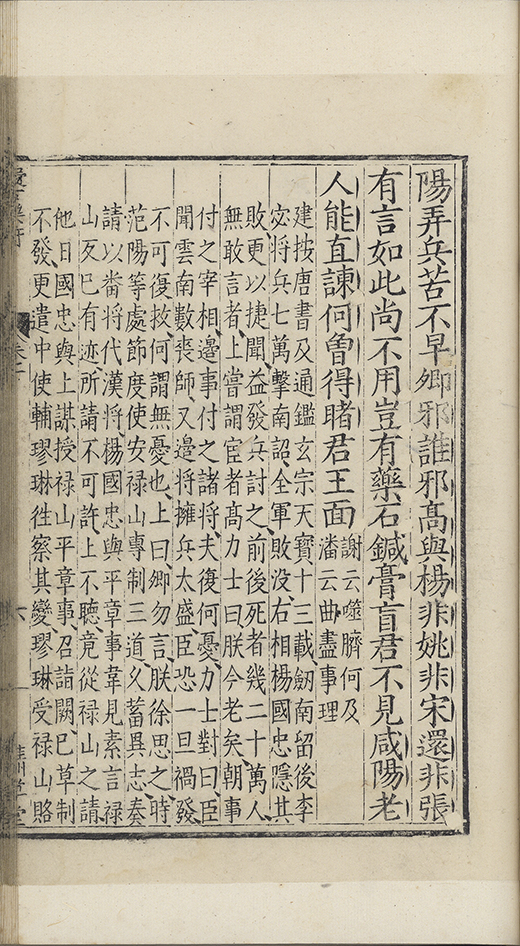 陽弄兵苦不早卿邪誰邪髙與楊非姚非宋還非張
有言如此尚不用豈有藥石鍼膏肓君不見咸陽老
人能直諫何曾得睹君王面
謝云噬臍何及
潘云曲盡事理
建按唐書及通鑑玄宗天寳十三載劒南留後李
宓將兵七萬擊南詔、全軍敗没、右相楊國忠隠其
敗、更以捷聞、益發兵討之、前後死者幾二十萬人、
無敢言者、上嘗謂宦者髙力士曰、朕今老矣、朝事
付之宰相、邊事付之諸將、夫復何憂、力士對曰、臣
聞雲南數喪師、又邊將擁兵太盛、臣恐一旦禍發、
不可復救、何謂無憂也、上曰、卿勿言、朕徐思之、時
范陽等處節度使安禄山專制三道、久蓄異志、奏
請以畨將代漢將、楊國忠與平章事韋見素言禄
山反巳有迹、所請不可許、上不聽、竟從禄山之請、
他日國忠與上謀、授禄山平章事、召詣闕、巳草制
不發、更遣中使輔璆琳徃察其變、璆琳受禄山賂
六